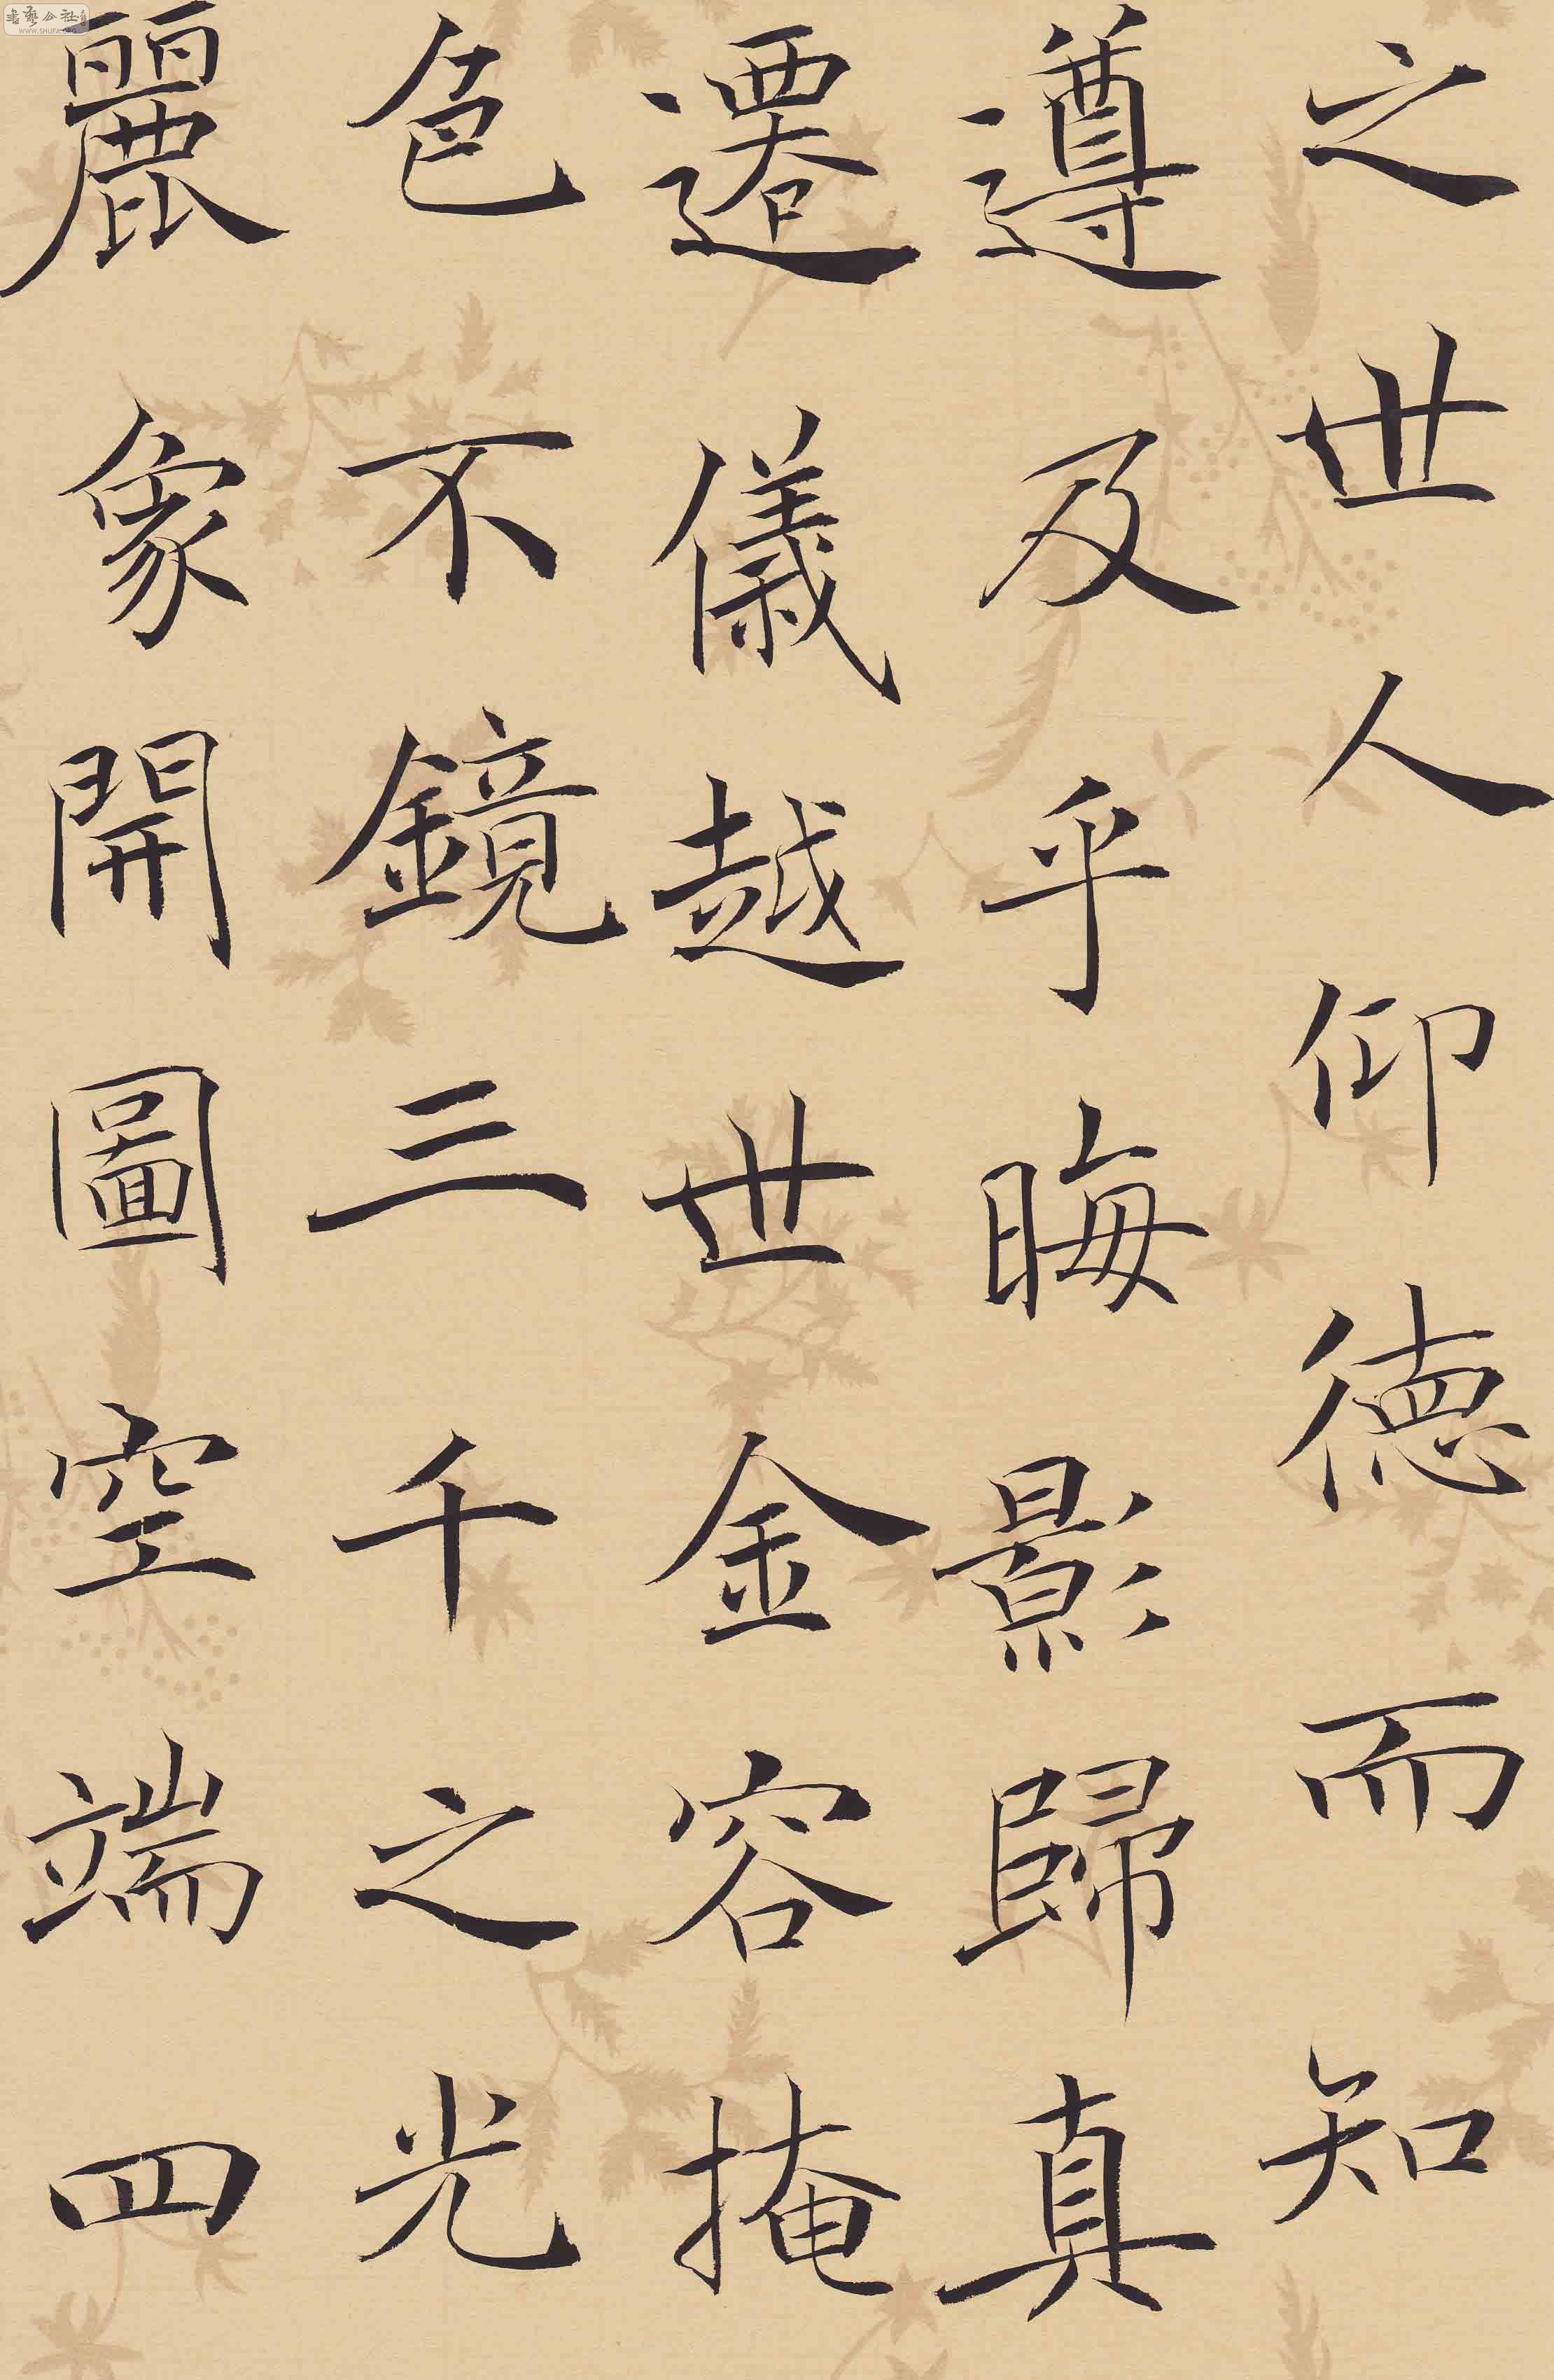 之世人仰德而知
遵及乎晦影歸真
遷儀越世金容掩
色不鏡三千之光
麗象開圖空端四
WWW.SHUFA.ORG